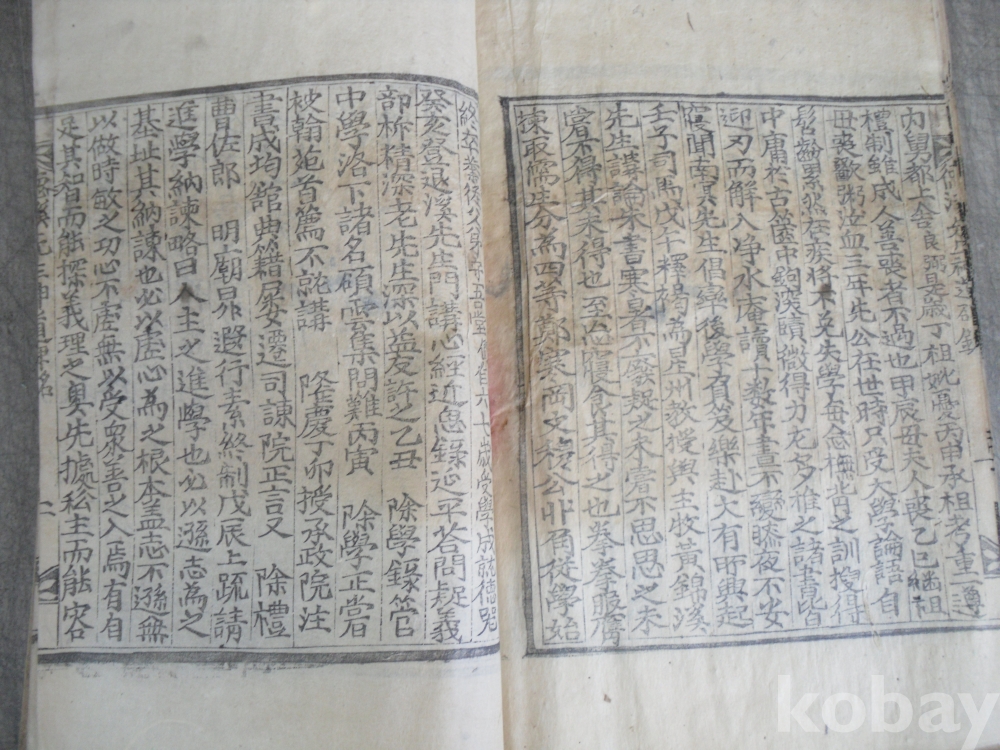 內舅都上舍良弼是歲丁祖妣憂丙申承祖考重一遵
禮制雖成人善喪者不過也甲辰母夫人喪乙巳
毋喪歠粥泣血三年先公在世時只受大學論語自
髫齡累然在疚將不久失學每念撫背之訓搜得
中庸於古篋中鉤深賾微得力尤多雅之諸書皆
迎刃而解入淨水庵讀十數年晝不 夜不安
寢聞南冥先生倡率後學自發樂赴大有所興起
壬子司馬戊午釋褐為星州教授與主牧黃錦溪
先生講論朱書寒暑不廢疑之未嘗不思思之未
嘗不得其未得也至忘寢食其得之也拳拳服膺
揀取儒生分為四等鄭寒岡文穆公丱角從學始
終
癸亥登退溪先生門講心經近思錄延平答問疑義
部析精深老先生深以益友許之乙丑 除學錄官
中學洛下諸名碩雲集問難丙寅 除學正嘗
被翰苑首薦不就講 隆慶丁卯授承政院注
書成均館典籍屢遷司諫院正言又 除禮
曹佐郎 明廟昇遐行素終制戊辰上疏請
進學納諫略曰人主之進學也必以遜志為之
基址其納諫也必以虛心為之根本盖志不遜無
以做時敏之功心不虛無以受衆善之入焉有自
是其智而能探義理之奧先據私主而能容
kobay